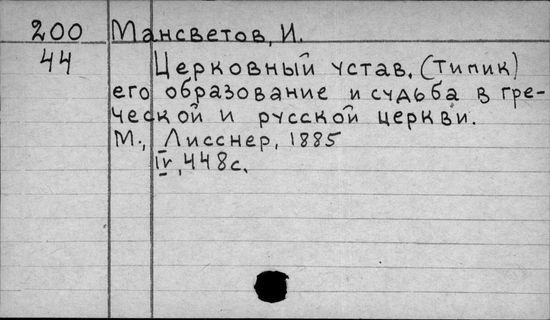 200 Мансветов, И.
44 Церковный устав. (типик)
его образование и судьба в гре-
ческой и русской церкви.
М., Лисснер, 1885
IV, 448с.